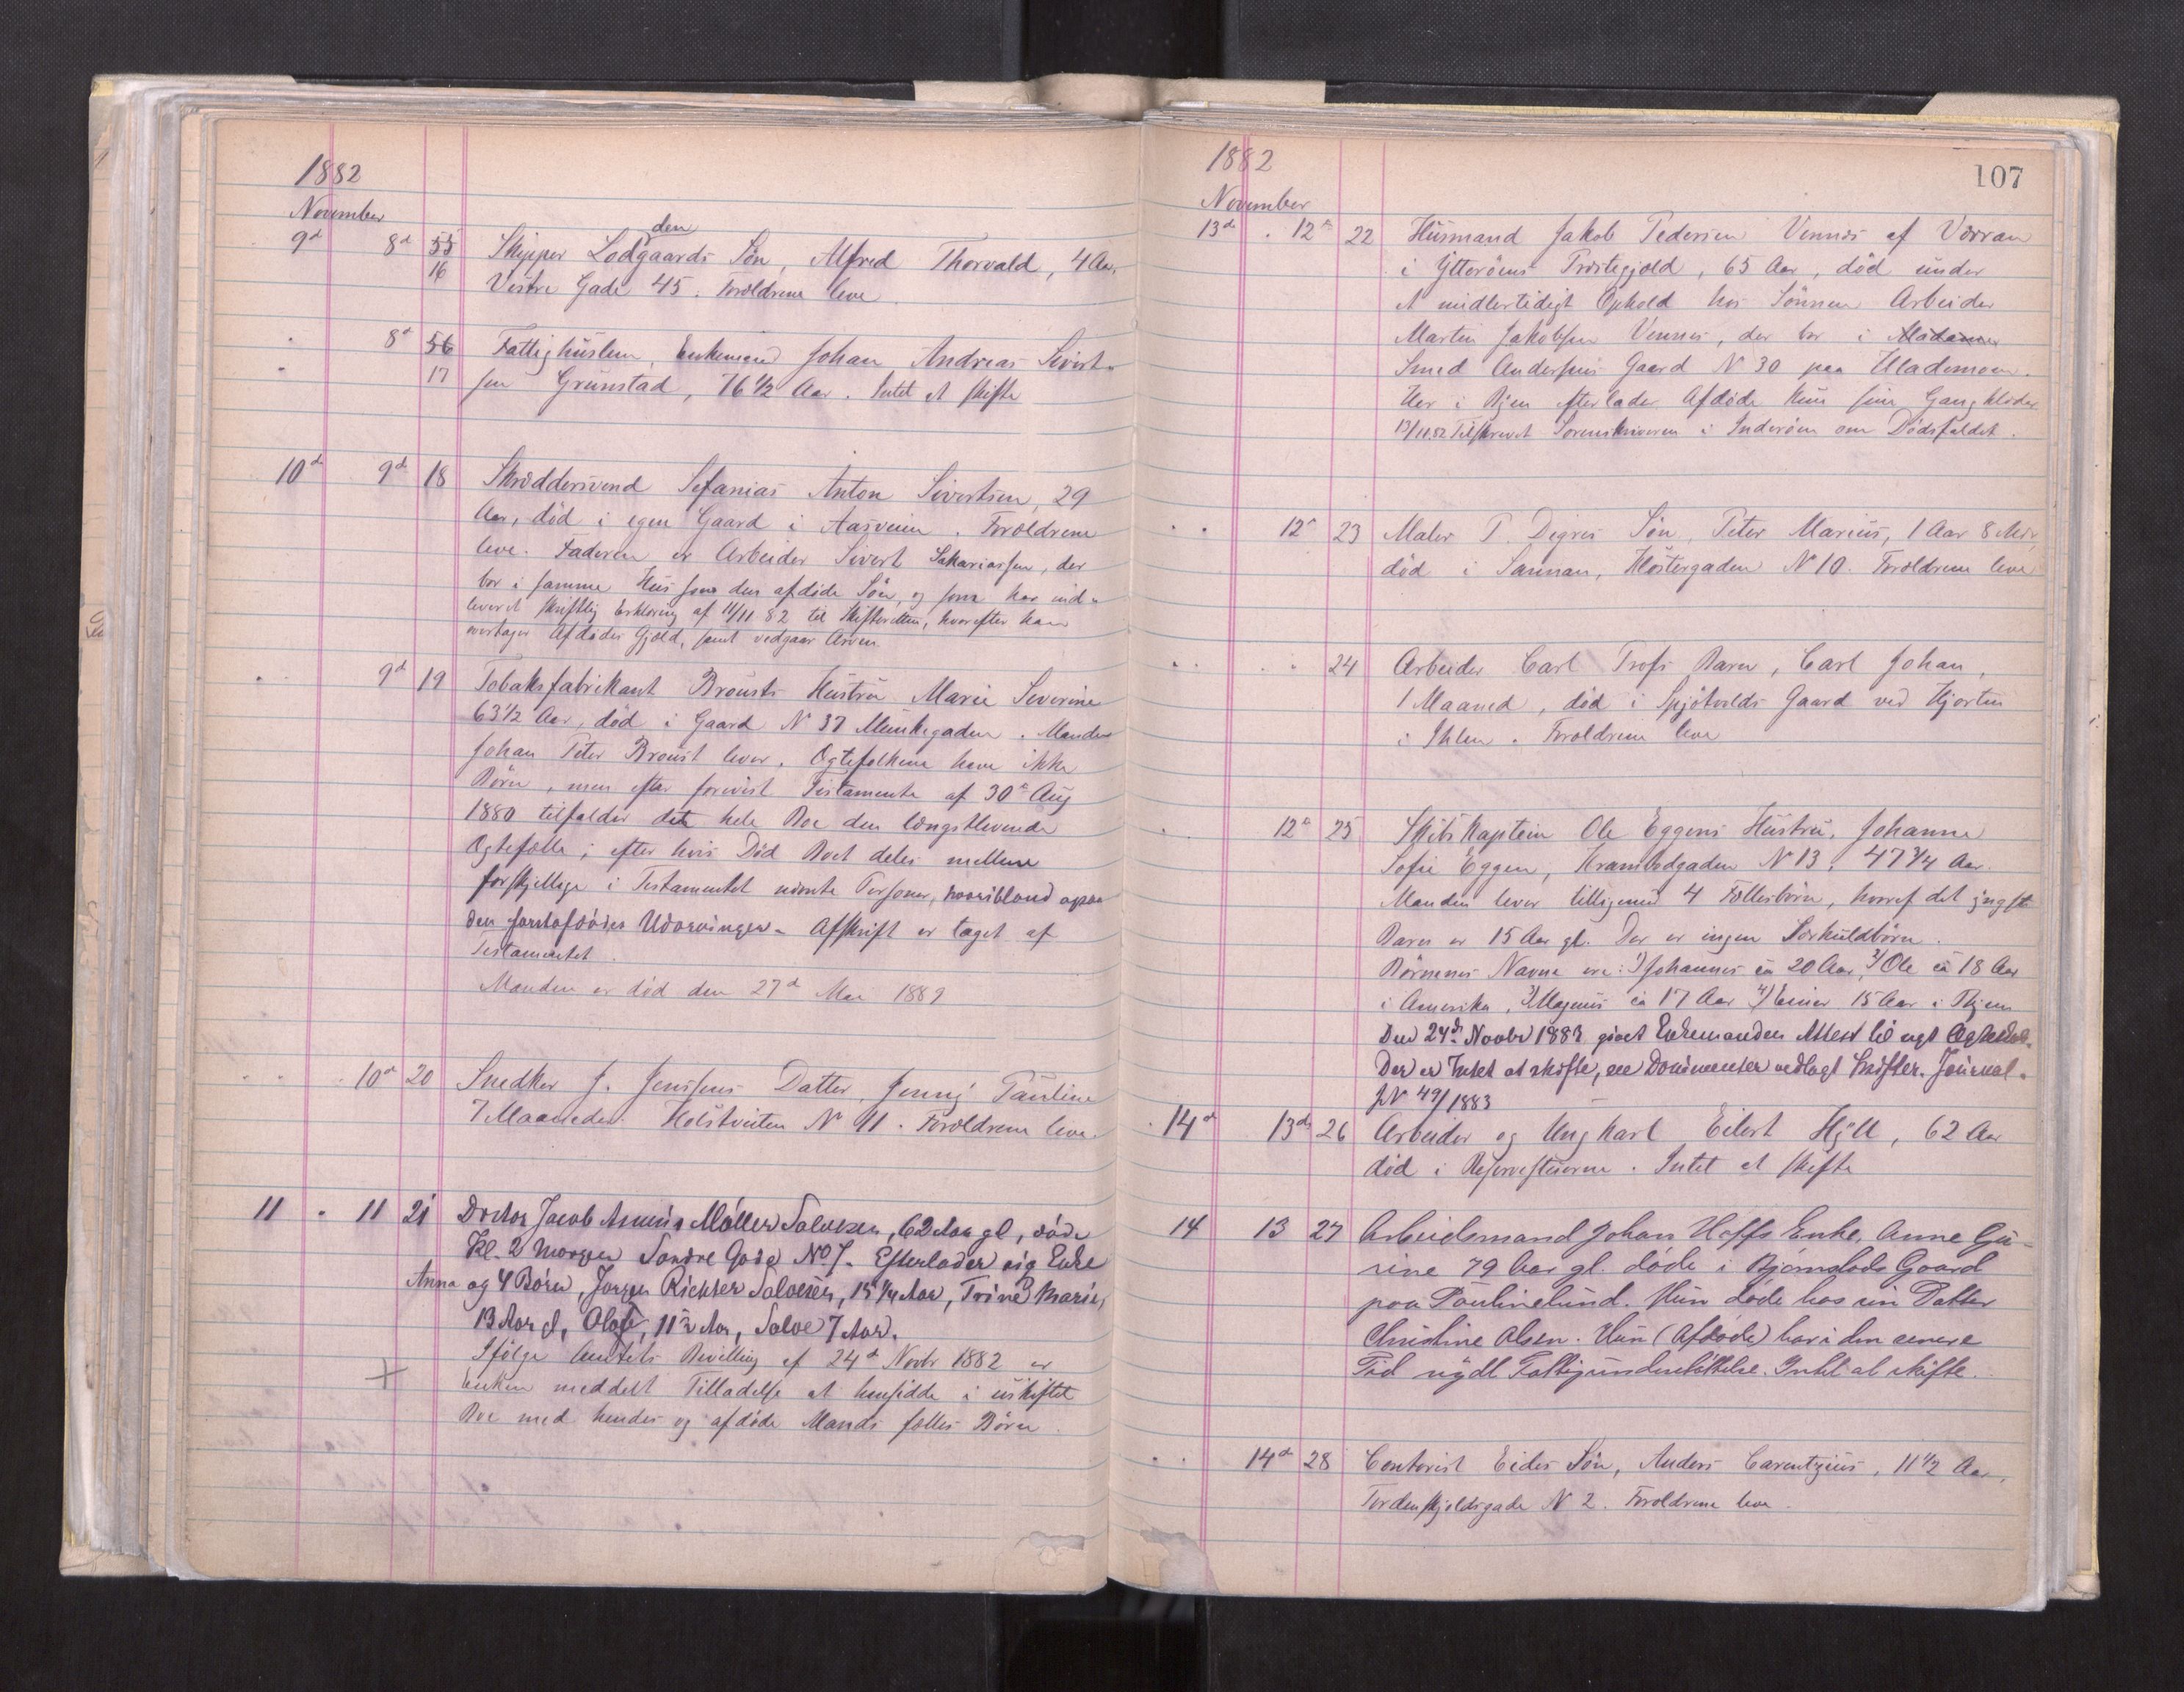 1882
November
9d 8d 55 Skipper Lodgaards Søn, Alfred Thorvald, 4 Aar,
den
16 Vestre Gade 45. Forældrene leve.
8d 56 Fattighuslem, Enkemand Johan Andreas Sivert-
17 sen Grünstad, 76 1/2 Aar. Intet at skifte
10d 9d 18 Skræddersvend Sefanias Anton Sivertsen, 29
Aar, død i egen Gaard i Aasveien. Forældrene
leve. Faderen er Arbeider Sivert Sakariassen, der
bor i samme Hus som den afdøde Søn, og som har ind-
leveret skriftlig Erklæring af 11/11 82 til Skifteretten, hvorefter han
overtager Afdødes Gjæld, samt vedgaar Arven.
9d 19 Tobaksfabrikant Brousts Hustru Marie Severine
63 1/2 Aar, død i Gaard N 37 Munkegaden. Manden
Johan Peter Broust lever. Ægtefolkene have ikke
Børn, men efter forevist Testamente af 30te Aug
1880 tilfalder dette hele Boe den længstlevende
Ægtefælle; efter hvis Død Boet deles mellem
forskjellige i Testamentet nævnte Personer, hvoriblandt ogsaa
den førstafdødes Udarvinger. Afskrift er taget af
Testamentet.
Manden er død den 27d Mai 1889
10d 20 Snedker J. Jenssens Datter, Jenny Pauline
7 Maaneder. Holstveiten N 11. Forældrene leve.
11 11 21 Doctor Jacob Møller Salvesen, 62 Aar gl, døde
Kl. 2 Morgen Søndre Gade No 7. Efterlader sig Enke
Anna og 4 Børn, Jørgen Richter Salvesen, 15 1/4 Aar, Trine Marie,
13 Aar gl, Oluf, 11 1/2 Aar, Salve 7 Aar.
Ifølge Amtets Bevilling af 24d Novbr 1882 er
Enken meddelt Tilladelse at hensidde i uskiftet
Boe med hendes og afdøde Mands fælles Børn.
1882
107
November
13de 12te 22 Husmand Jakob Pedersen Vennes af Værran
i Ytterøens Præstegjæld, 65 Aar, død under
et midlertidigt Ophold hos Sønnen Arbeider
Martin Jakobsen Vennes, der bor i Madame
Smed Andersens Gaard N 30 paa Ilademoen.
Her i Byen efterlader Afdøde kun sine Gangklæder
13/11.82 Tilskrevet Sorenskriveren i Inderøen om Dødsfaldet.
12te 23 Maler P. Degres Søn, Peter Marius, 1 Aar 8 Mdr,
død i Sannan, Klostergaden N 10. Forældrene leve
24 Arbeider Carl Trofs Barn, Carl Johan,
1 Maaned, død i Spjøtvolds Gaard ved Hjorten
i Ihlen. Forældrene leve
12te 25 Skibskaptein Ole Eggens Hustru, Johanne
Sofie Eggen, Krambodgaden N 13, 47 3/4 Aar.
Manden lever tilligemed 4 Fællesbørn, hvoraf det yngste
Barn er 15 Aar gl. Der er ingen Særkuldbørn.
Børnenes Navne ere: 1) Johannes ca 20 Aar, 2) Ole ca 18 Aar
i Amerika, 3) Magnus ca 17 Aar 4) Einar 15 Aar i Thjem
Den 24de Novbr 1883 givet Enkemanden Attest til nyt Ægteskab.
Der er Intet at skifte, see Documenter vedlagt Skifter. Journal.
JN 49/1883
14d 13de 26 Arbeider og Ungkarl Eilert Hyll, 62 Aar
død i Reservestuerne. Intet at skifte
14 13 27 Arbeidsmand Johan Hoffs Enke, Anne Gu-
rine 79 Aar gl. døde i Bjørnstads Gaard
paa Paulinelund. Hun døde hos sin Datter
Christine Olsen. Hun (Afdøde) har i den senere
Tid nydt Fattigunderstøttelse. Intet at skifte.
14de 28 Contorist Eides Søn, Anders Carentzius, 11 1/2 Aar,
Tordenskjoldsgade N 2. Forældrene leve.